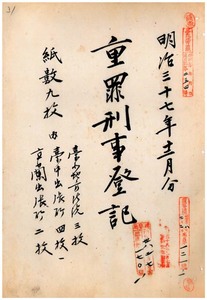 明治三十七年十二月分
重罪刑事登記
紙数九枚
内
臺北地方法院 三枚
臺中出張所 四枚
宜蘭出張所 二枚